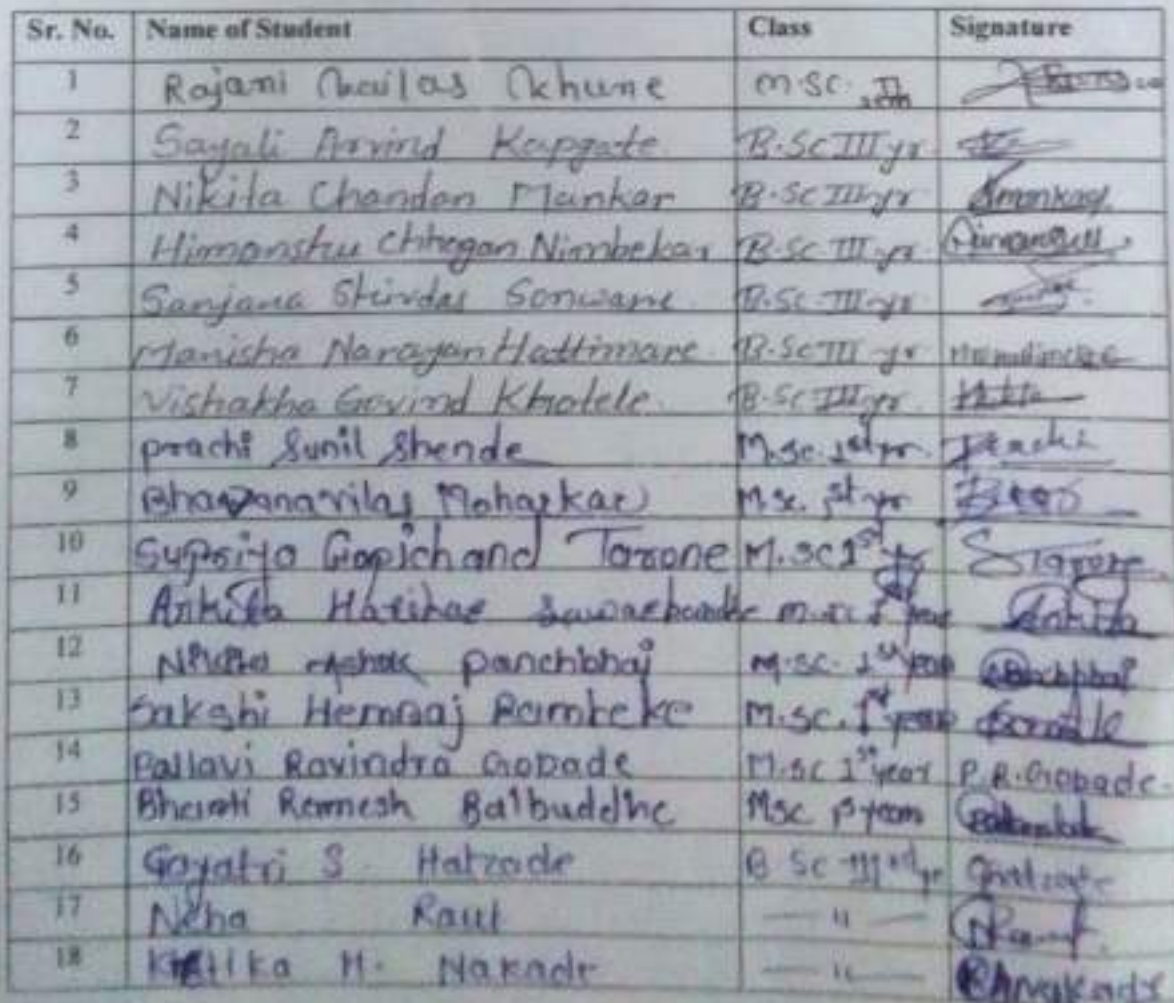 Sr. No. Name of Student Class Signature
1 Rajani Khune M.SC. II sem
2 Sayali Arvind Kapgate B.Sc III yr
3 Nikita Chandan Mankar B.Sc III yr
4 Himanshu Chhagan Nimbekar B.Sc III yr
5 Sanjana Shivdas Sonwane B.Sc III yr
6 Manisha Narayan Hattimare B.Sc III yr
7 Vishakha Govind Khotele B.Sc III yr
8 Prachi Sunil Shende M.sc. 1st yr Prachi
9 Moharkar M.sc. 1st yr
10 Supriya Gopichand Tarone M.SC 1st yr STarone
11 Ankita 1st year Ankita
12 Ashok Panchbhai M.sc. 1st year
13 Sakshi Hemraj Ramteke M.sc. 1st year
14 Pallavi Ravindra Gopade M.sc 1st year P.R.Gopade
15 Bharti Ramesh Balbuddhe Msc 1st year
16 Gayatri S. Hatzade B Sc IIIrd yr Ghatzade
17 Neha Raut — " — NRaut
18 H. Nakade — " —